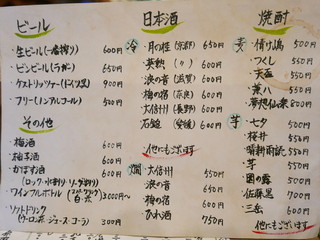 ビール
・生ビール(一番搾り) 600円
・ビンビール(ラガー) 650円
・ケストリッツァー(ドイツ黒) 900円
・フリー(ノンアルコール) 500円
その他
・梅酒 600円
・柚子酒 600円
・かぼす酒 600円
(ロック・水割り・ソーダ割り)
・ワインフルボトル(赤・白) 3000円〜
・ソフトドリンク 300円
(ウーロン茶 ジュース・コーラ)
日本酒
冷
・月の桂(京都) 650円
・英勲(〃) 600円
・浪の音(滋賀) 600円
・梅の宿(奈良) 600円
・大信州(長野) 600円
・石鎚(愛媛) 600円
他にもございます
燗
・大信州 750円
・浪の音 650円
・梅の宿 600円
・ひれ酒 750円
焼酎
麦
・つくし 550円
・天盃
・兼八
・夢想仙楽 800円
芋
・七夕 500円
・桜井
・晴耕雨読 550円
・芋
・国の露 500円
・佐藤黒 700円
・三岳 600円
他にもございます